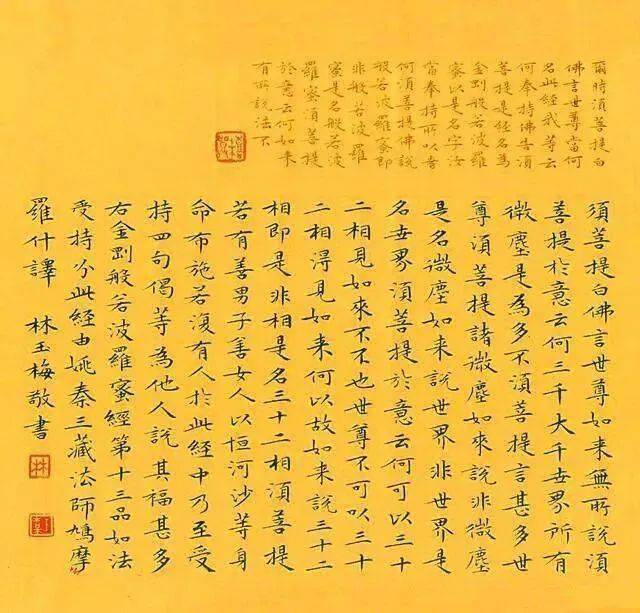 爾時須菩提白
佛言世尊當何
名此經我等云
何奉持佛告須
菩提是經名為
金剛般若波羅
蜜以是名字汝
當奉持所以者
何須菩提佛說
般若波羅蜜即
非般若波羅
蜜是名般若波
羅蜜須菩提
於意云何如来
有所說法不
須菩提白佛言世尊如来無所說須
菩提於意云何三千大千世界所有
微塵是為多不須菩提言甚多世
尊須菩提諸微塵如來說非微塵
是名微塵如来說世界非世界是
名世界須菩提於意云何可以三十
二相見如來不不也世尊不可以三十
二相得見如来何以故如来說三十二
相即是非相是名三十二相須菩提
若有善男子善女人以恒河沙等身
命布施若復有人於此經中乃至受
持四句偈等為他人說其福甚多
右金剛般若波羅蜜經第十三品如法
受持分此經由姚秦三藏法師鳩摩
羅什譯 林玉梅敬書
林